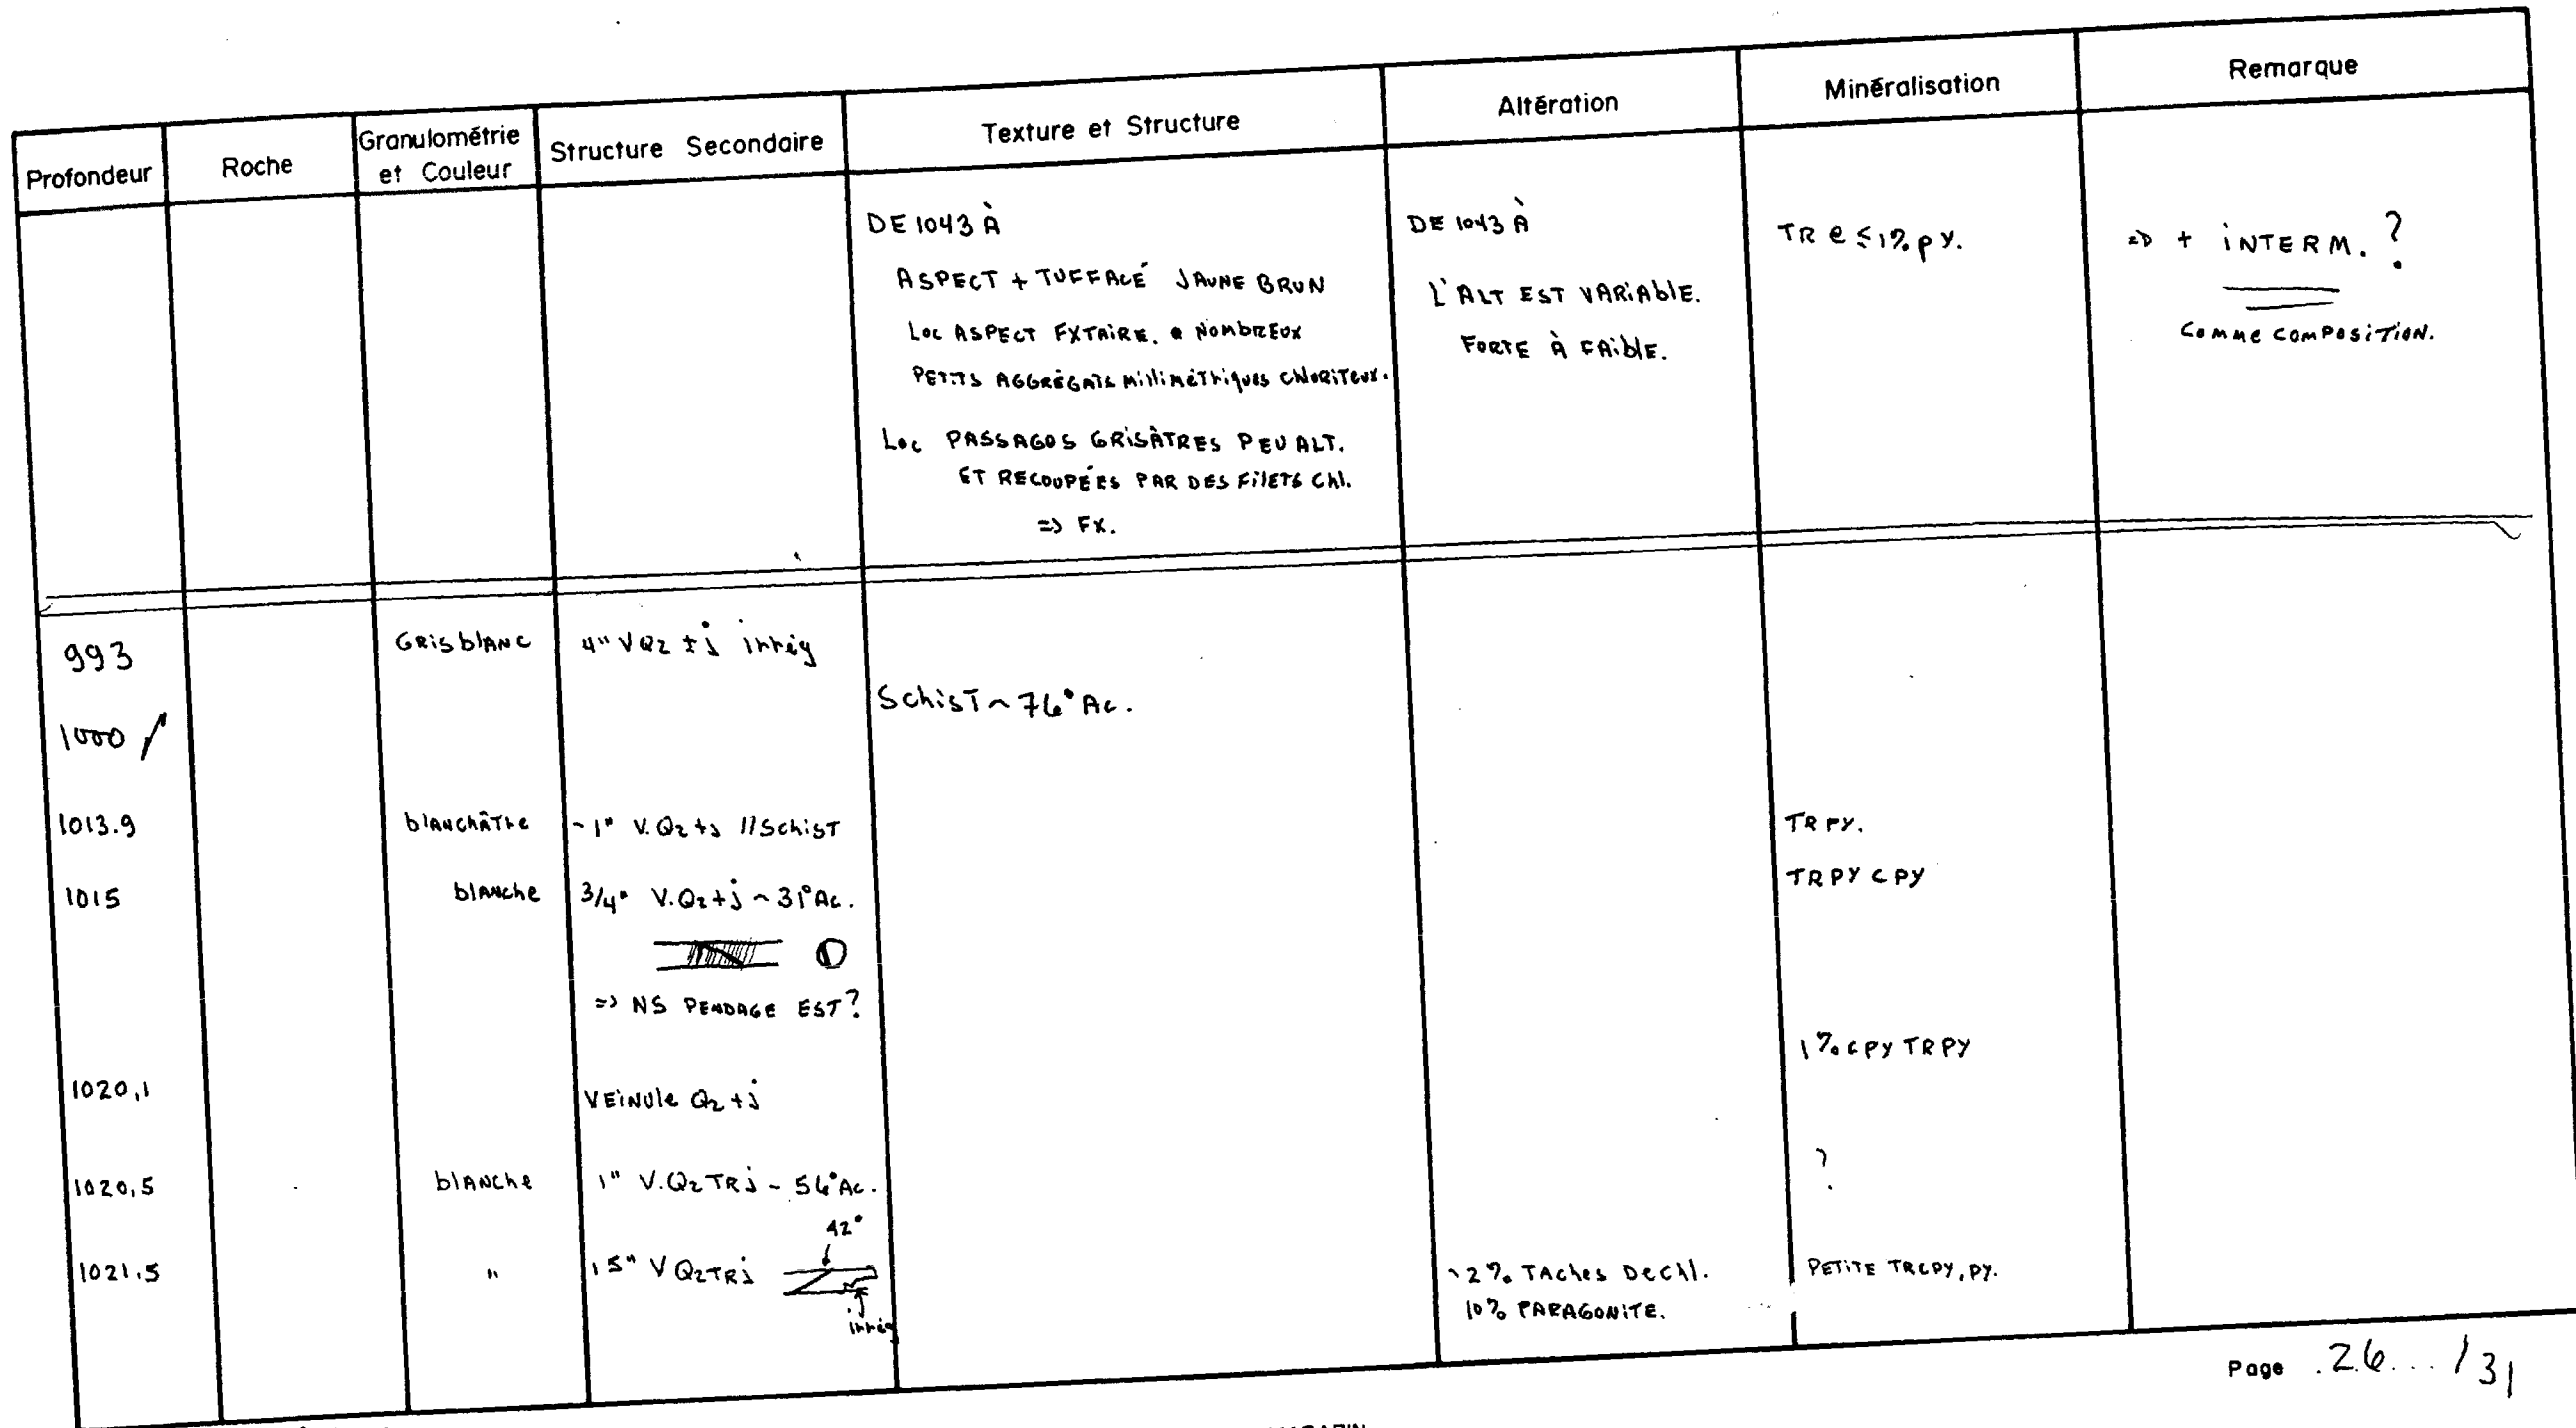 Profondeur
Roche
Granulométrie
et Couleur
Structure Secondaire
Texture et Structure
Altération
Minéralisation
Remarque
DE 1043 À
ASPECT + TUFFACÉ JAUNE BRUN
LOC ASPECT FXTAIRE. NOMBREUX
PETITS AGGRÉGATS MilliMÉTRiques CHLORITEUX.
LOC PASSAGES GRISÂTRES PEU ALT.
ET RECOUPÉES PAR DES FILETS Chl.
=> FX.
DE 1043 À
L'ALT EST VARIABLE.
FORTE À FAIBLE.
TR @ ≤1% PY.
=> + INTERM. ?
COMME COMPOSITION.
993
GRIS BLANC
4" VQz ±j irrég
SchisT ~ 76° Ac.
1000 /
1013.9
blANchÂTre
~1" V.Qz+j //SchisT
TR PY.
1015
blANche
3/4" V.Qz+j ~ 31° Ac.
TR PY CPY
=> NS PENDAGE EST?
1020,1
VEINule Qz +j
1% CPY TR PY
1020,5
blANche
1" V.Qz TR j ~ 56° Ac.
?
1021.5
"
1.5" V Qz TR j
42°
irrég
~2% TAches De Chl.
10% PARAGONITE.
PETITE TR CPY, PY.
Page .26... /31